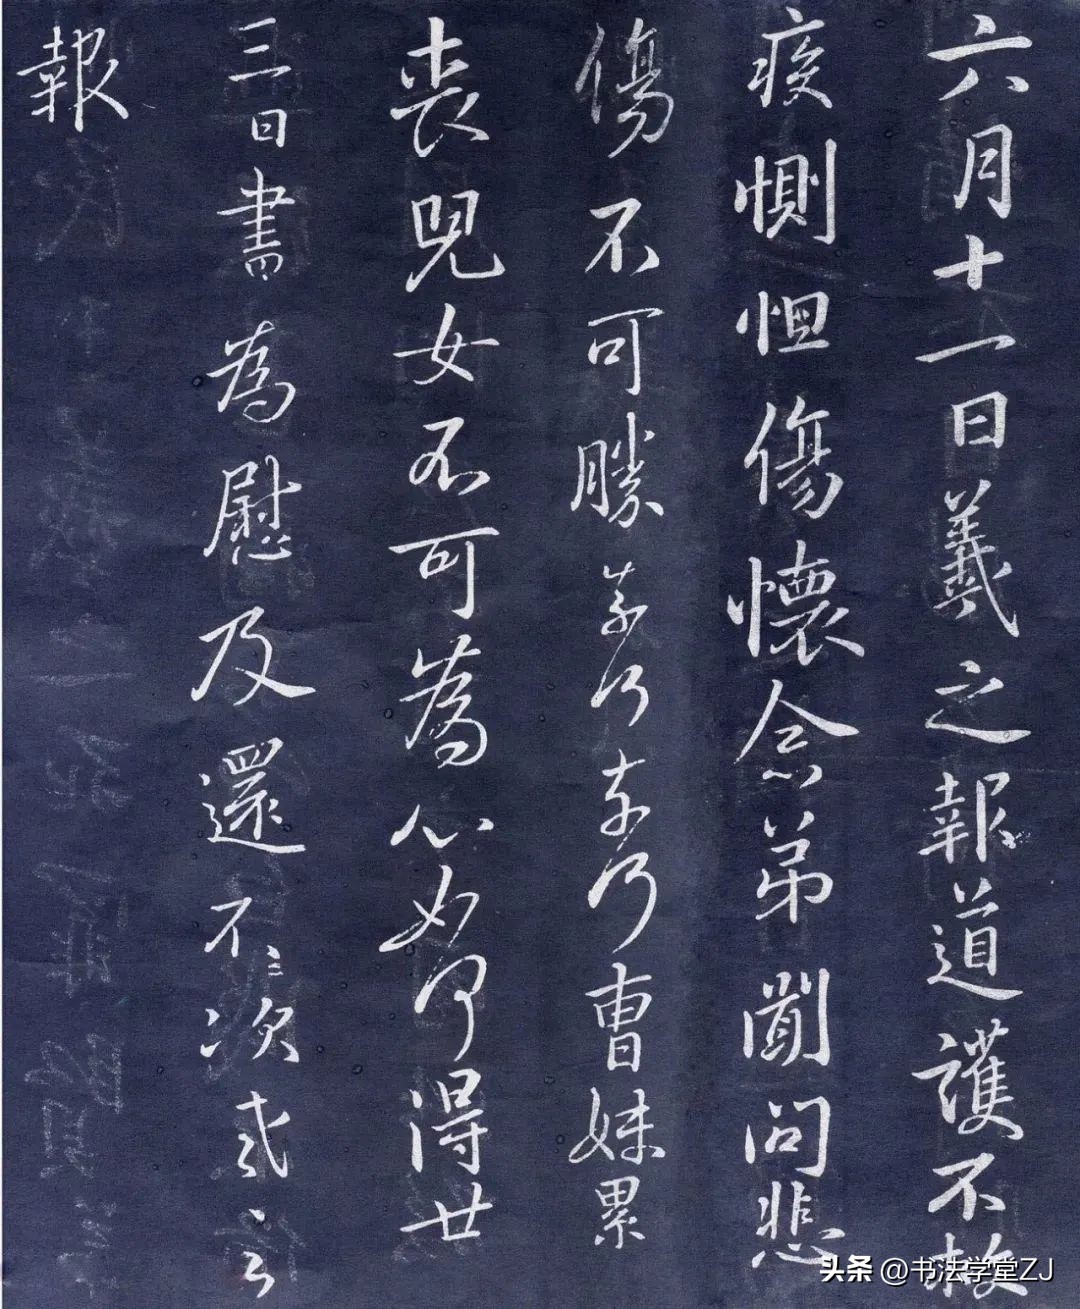 六月十一日羲之報道護不救
疾惻怛傷懷念弟聞問悲
傷不可勝奈何奈何曹妹累
喪兒女不可為心如何得廿
三日書為慰及還不次羲之
報
头条 @书法学堂ZJ